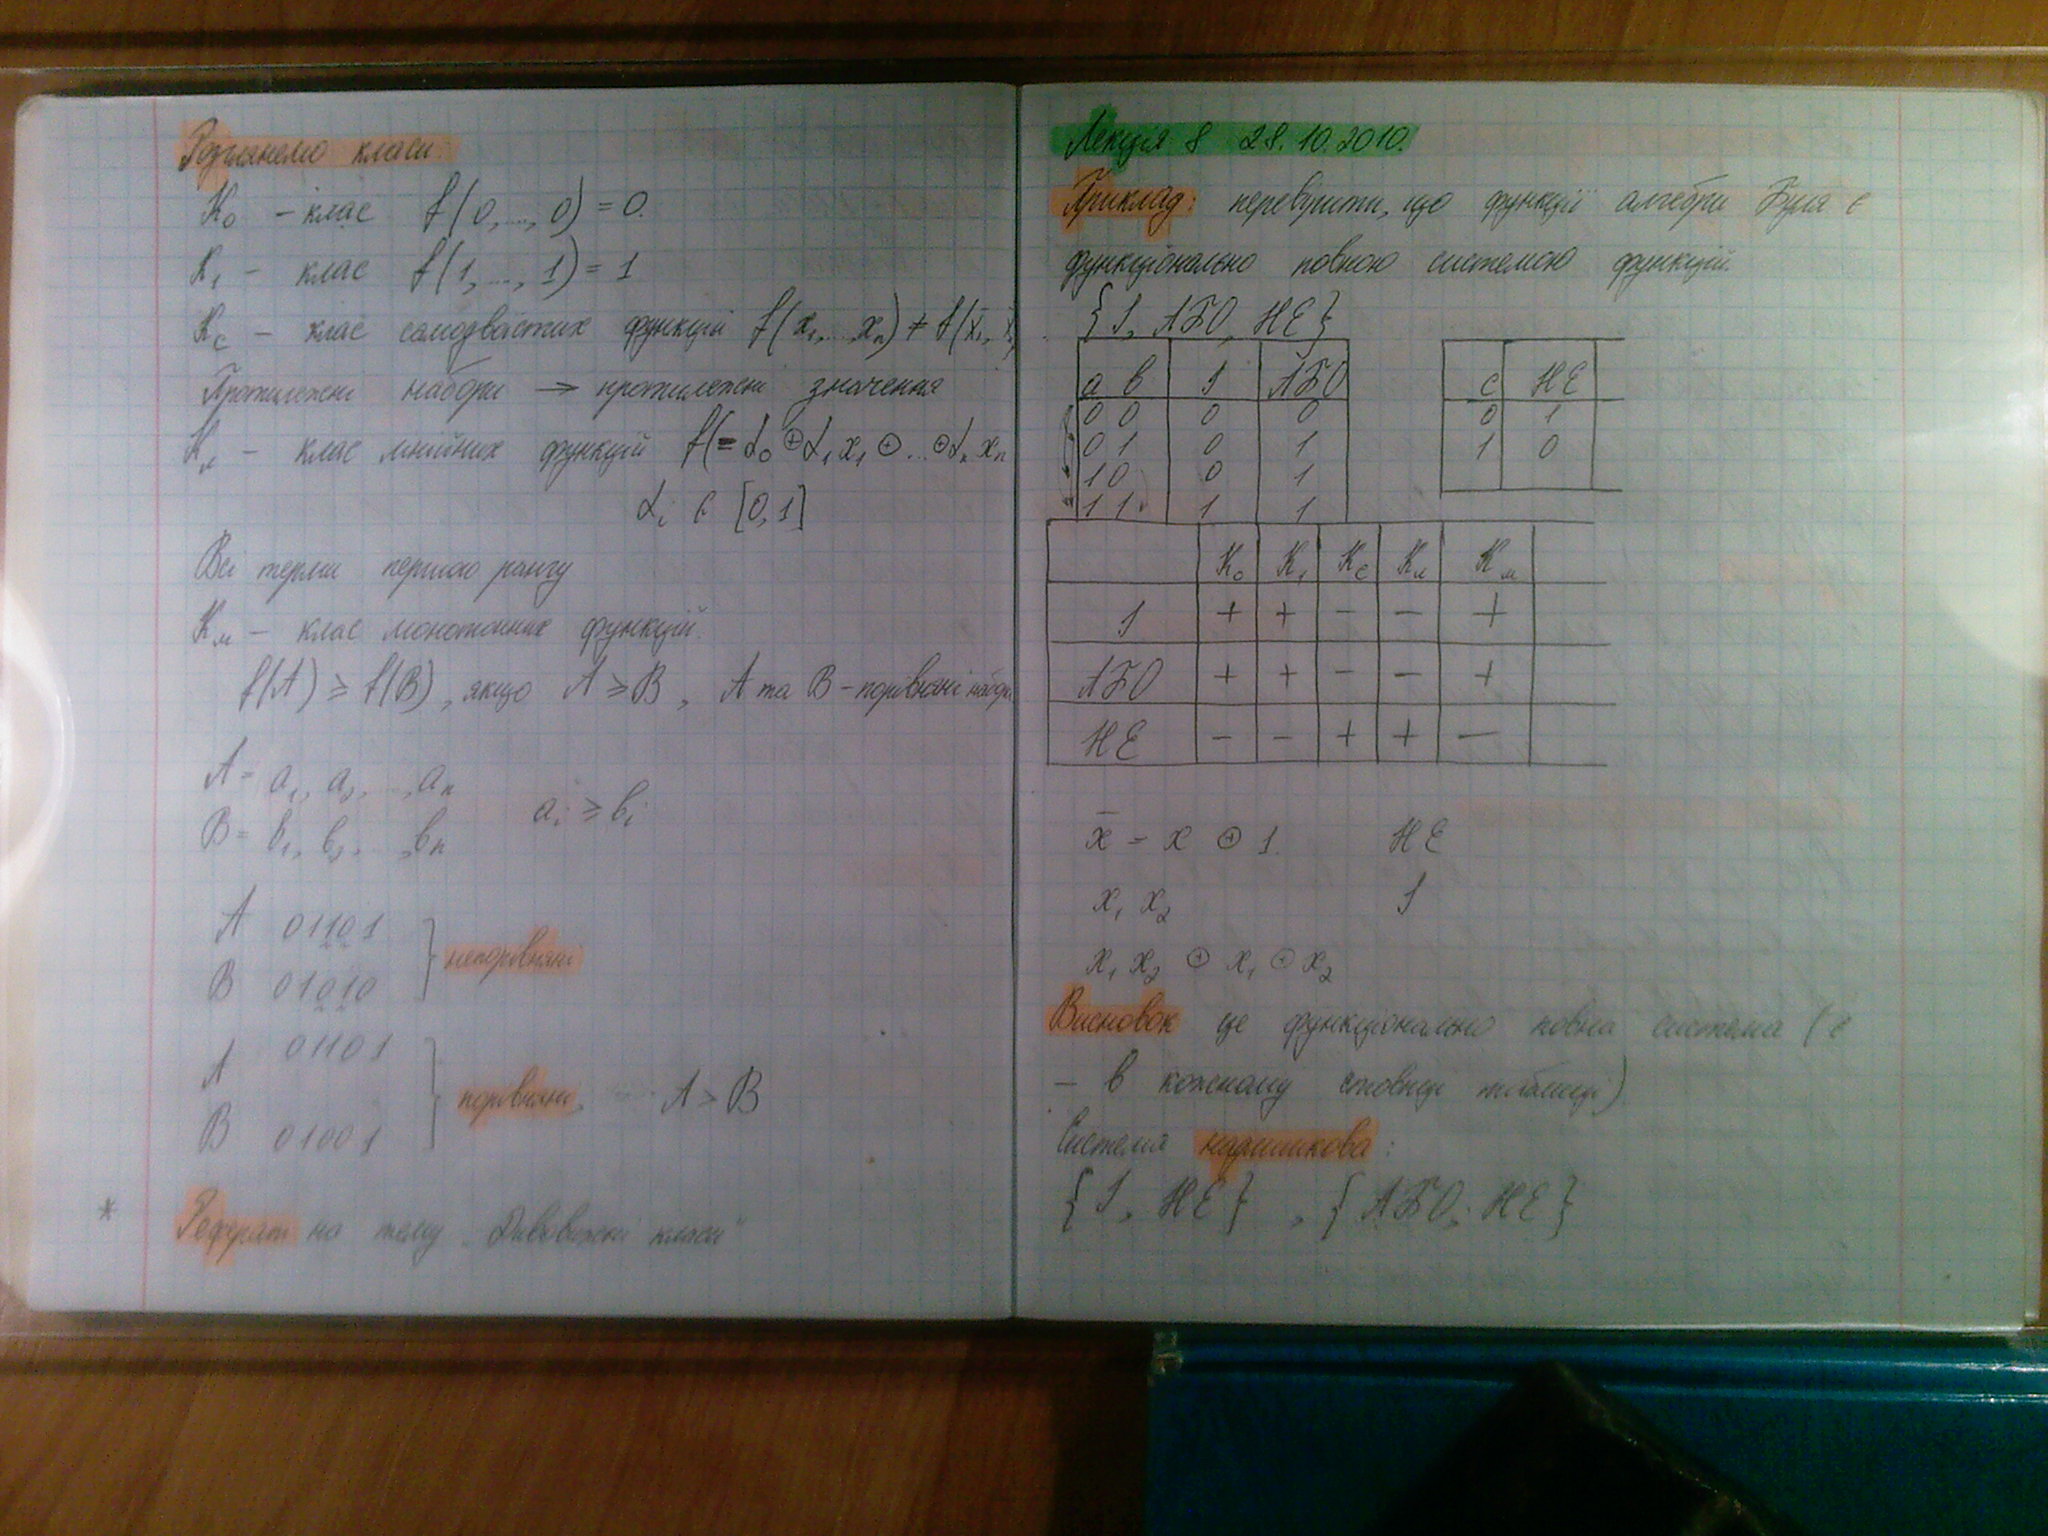 Розглянемо класи:
K₀ – клас f(0,...,0) = 0.
K₁ – клас f(1,...,1) = 1
Kс – клас самодвоїстих функцій f(x₁,...,xₙ) ≠ f(x̄₁,
Протилежні набори → протилежні значення
Kл – клас лінійних функцій f(= α₀ ⊕ α₁x₁ ⊕ ... ⊕ αₙxₙ
αᵢ є [0,1]
Всі терми першого рангу
Kм – клас монотонних функцій.
f(A) ≥ f(B), якщо A ≥ B, A та B – порівняні набори
A = a₁, a₂, ..., aₙ
B = b₁, b₂, ..., bₙ
aᵢ ≥ bᵢ
A 01101
B 01010
непорівняні
A 01101
B 01001
порівняні, A > B
* Реферат на тему "Дивовижні класи"
Лекція 8 28.10.2010.
Приклад: перевірити, що функції алгебри Буля є
функціонально повною системою функцій.
{І, АБО, НЕ}
a b І АБО
0 0 0 0
0 1 0 1
1 0 0 1
1 1 1 1
c НЕ
0 1
1 0
K₀ K₁ Kс Kл Kм
І + + – – +
АБО + + – – +
НЕ – – + + –
x̄ = x ⊕ 1. НЕ
x₁ x₂ І
x₁ x₂ ⊕ x₁ ⊕ x₂
Висновок це функціонально повна система (є
– в кожному стовпці таблиці)
Система надлишкова:
{І, НЕ}, {АБО, НЕ}